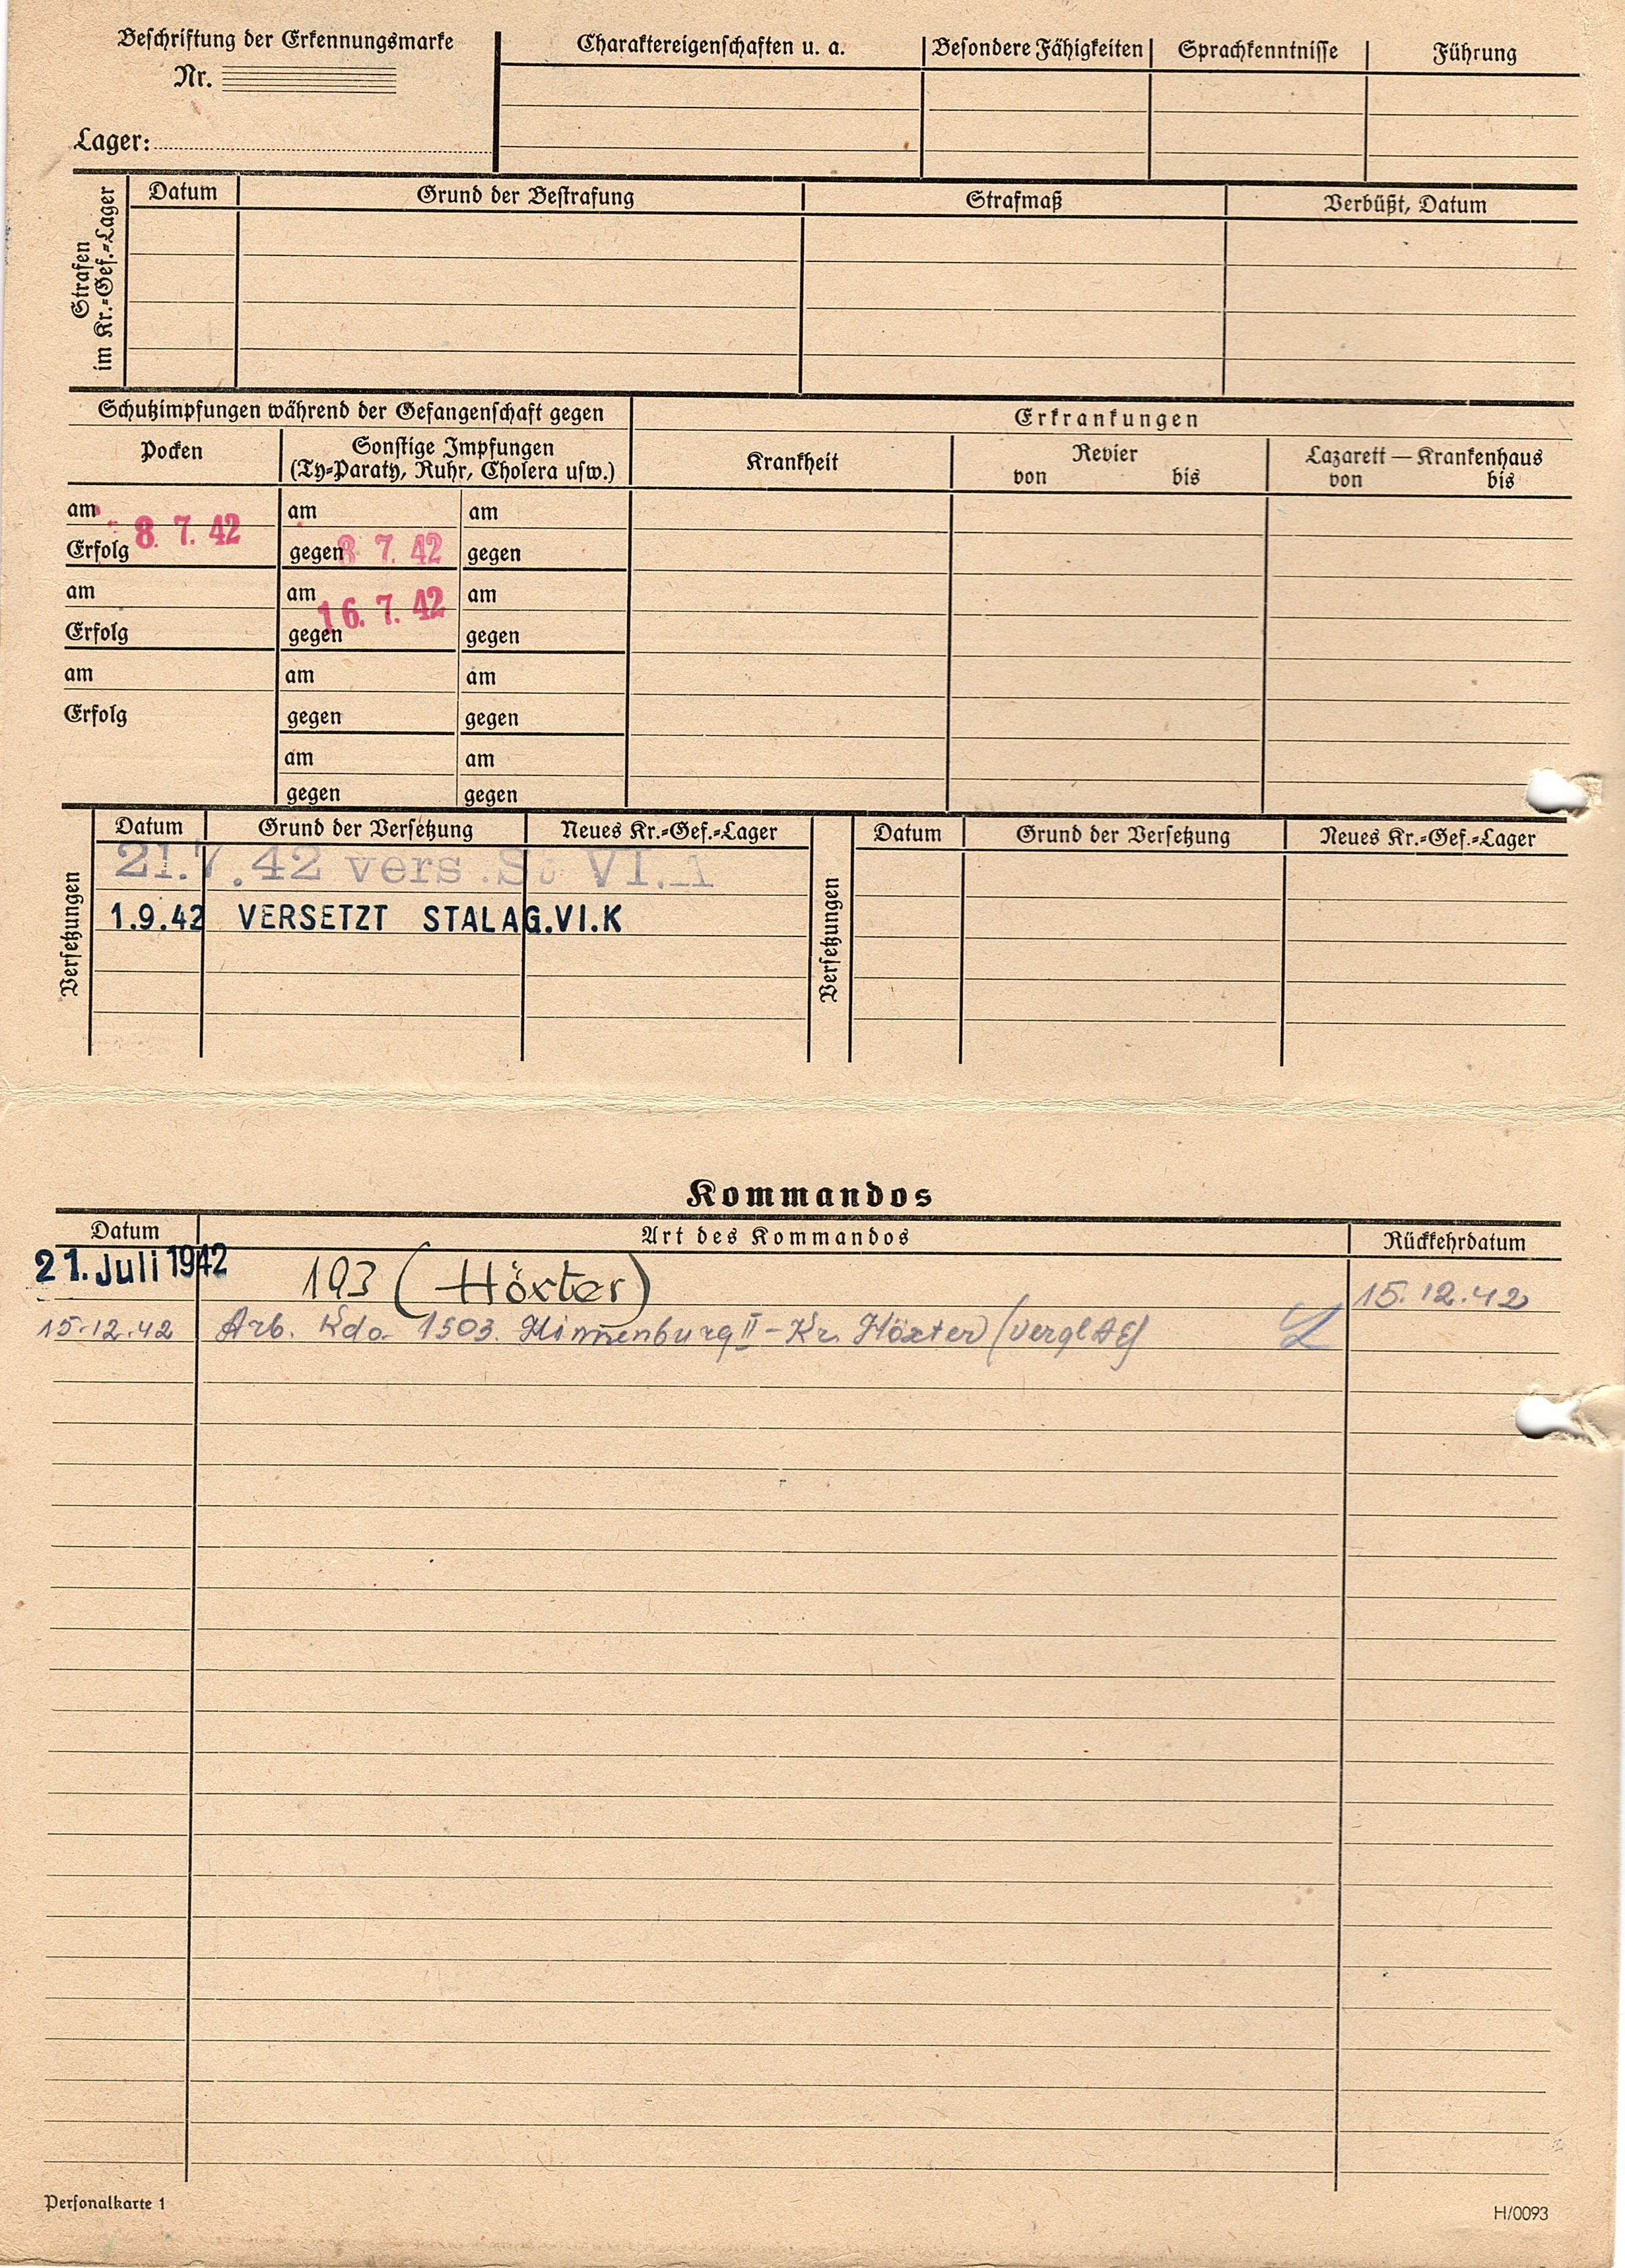 Beschriftung der Erkennungsmarke
Nr.
Lager:
Charaktereigenschaften u. a. Besondere Fähigkeiten Sprachkenntnisse Führung
Strafen
im Kr.-Gef.-Lager
Datum Grund der Bestrafung Strafmaß Verbüßt, Datum
Schutzimpfungen während der Gefangenschaft gegen
Erkrankungen
Pocken Sonstige Impfungen
(Ty-Paraty, Ruhr, Cholera usw.)
Krankheit Revier
von bis
Lazarett — Krankenhaus
von bis
am 8. 7. 42 am am
Erfolg gegen 8 7. 42 gegen
am am 16. 7. 42 am
Erfolg gegen gegen
am am am
Erfolg gegen gegen
am am
gegen gegen
Versetzungen
Datum Grund der Versetzung Neues Kr.-Gef.-Lager
21.7.42 vers. St VI.A
1.9.42 VERSETZT STALAG.VI.K
Versetzungen
Datum Grund der Versetzung Neues Kr.-Gef.-Lager
Kommandos
Datum Art des Kommandos Rückkehrdatum
21. Juli 1942 193 (Höxter) 15.12.42
15.12.42 Arb. Kdo. 1503. Hinnenburg II - Kr. Höxter (vergl AE)
Personalkarte 1
H/0093